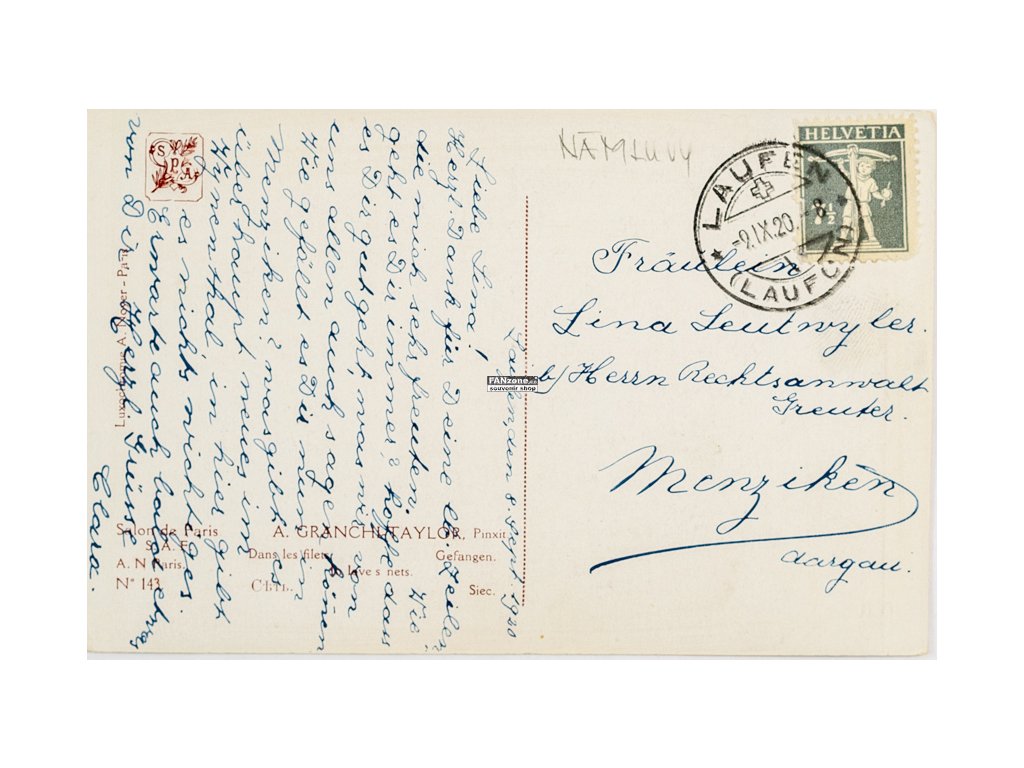 NÁMLUVY
HELVETIA
LAUFEN
-9.IX.20.-8
(LAUFON)
Fräulein
Lina Leutwyler.
b/ Herrn Rechtsanwalt
Greuter.
Menziken
Aargau.
FANzone.cz
souvenir shop
Laufen, den 8. Sept 1920
Liebe Lina!
Herzl Dank für Deine lb Zeilen
die mich sehr freuten. Wie
geht es Dir immer? hoffe dass
es Dir gut geht, was wir von
uns allen auch sagen können
Wie gefällt es Dir nun in
Menziken? was gibt es
überhaupt neues im
Wynental, in hier gibt
es nichts wichtiges.
Erwarte auch bald etwas
von Dir. Herzl. Grüsse
Clara.
SPA
Luxochromie A. Noyer - Paris
Salon de Paris
S.A.F.
A. N Paris.
N° 143
A. GRANCHI-TAYLOR, Pinxit.
Dans les filets
Gefangen.
In love's nets.
Siec.